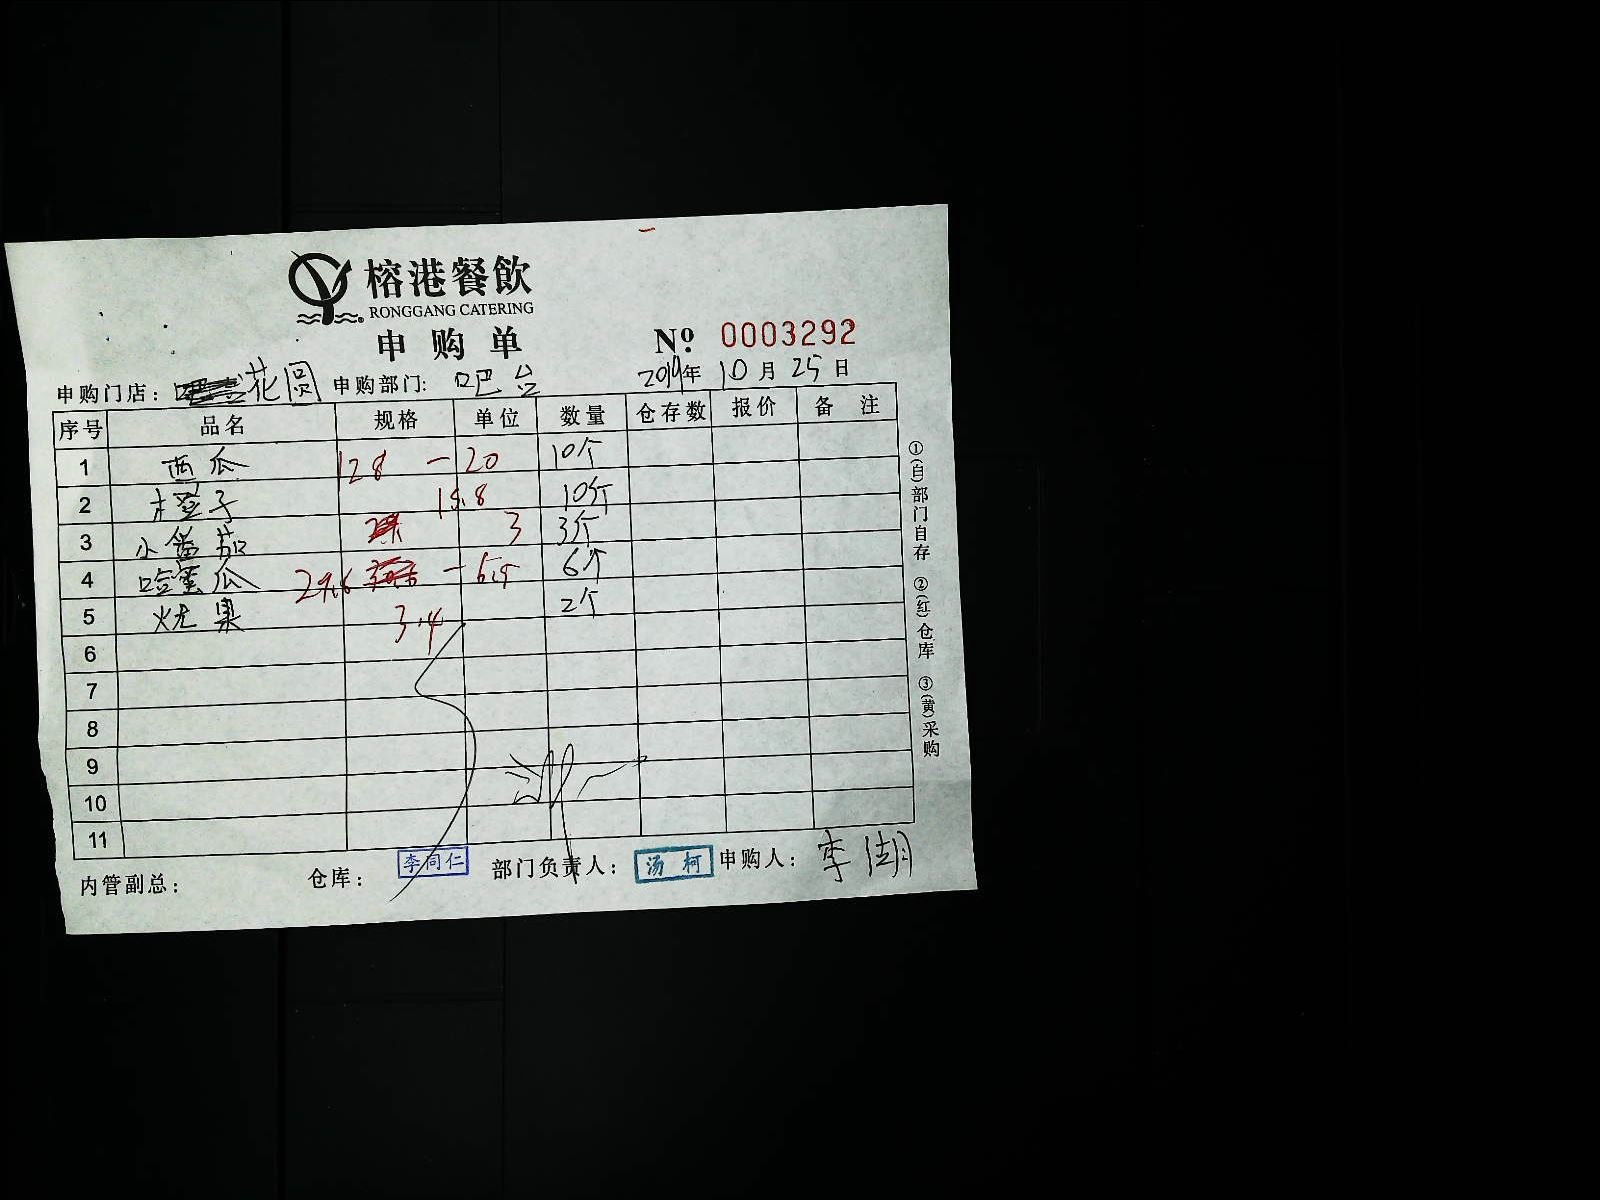 榕港餐飲
RONGGANG CATERING
申购单 Nº 0003292
申购门店: 花园 申购部门: 吧台 2019年 10月 25日
序号 品名 规格 单位 数量 仓存数 报价 备注
1 西瓜 128 - 20 10个
2 橙子 15.8 10个
3 小番茄 3 3个
4 哈蜜瓜 29.6 - 6.5 6个
5 火龙果 3.4 2个
6
7
8
9
10
11
内管副总: 仓库: 李同仁 部门负责人: 汤柯 申购人: 李湖
①(白)部门自存 ②(红)仓库 ③(黄)采购